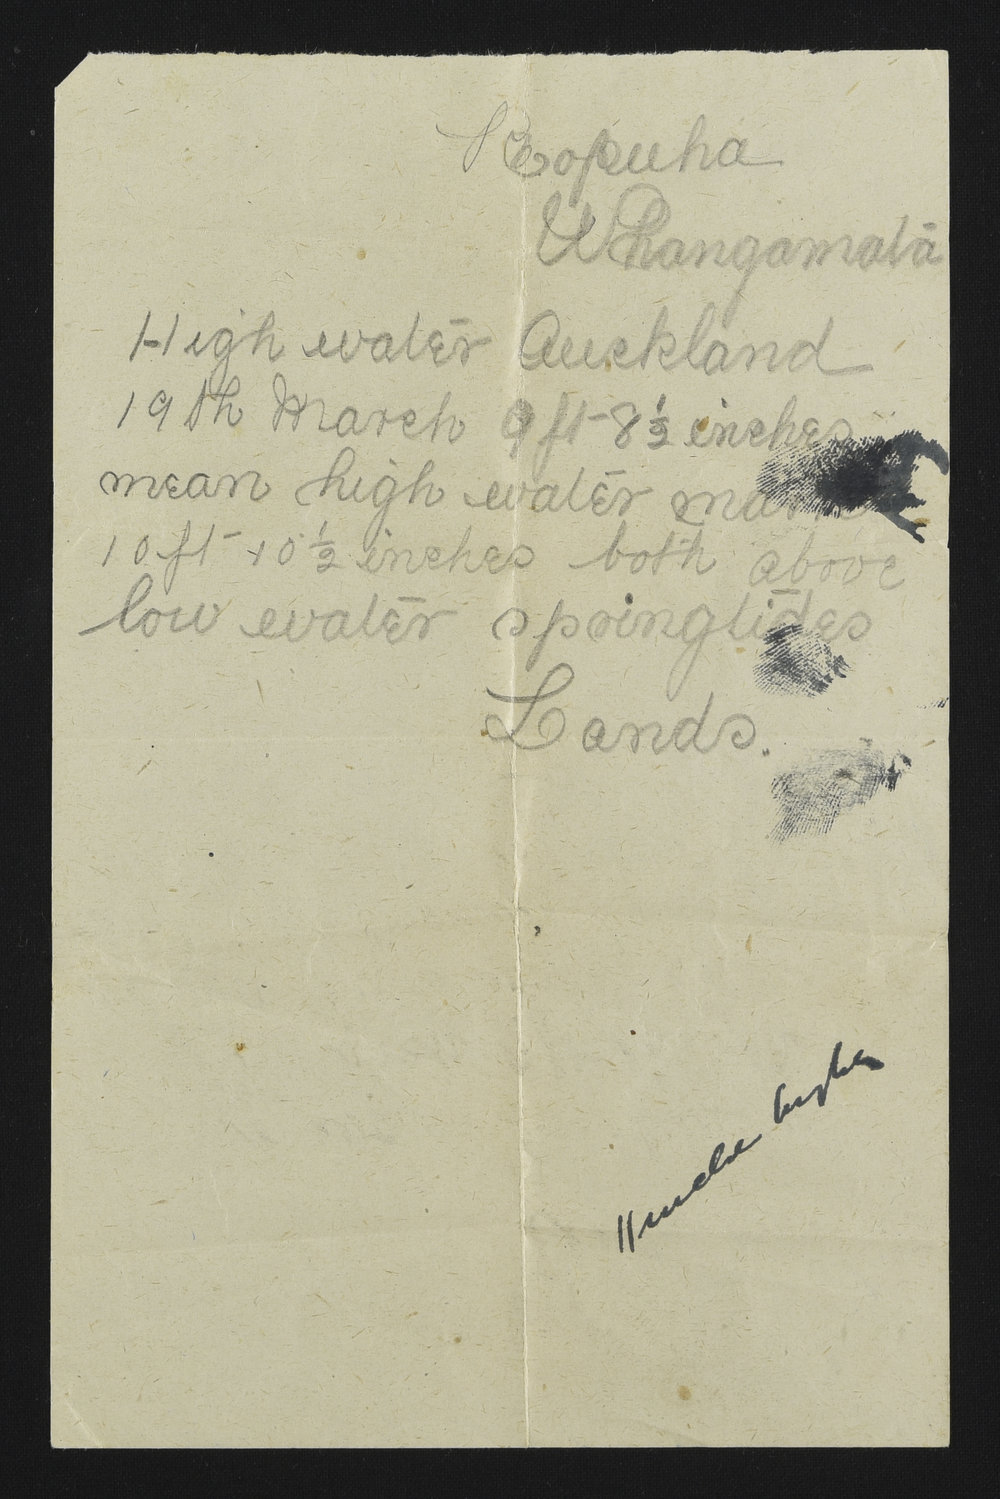 Kopuha
Whangamata
High water Auckland
19th March 9 ft 8½ inches
mean high water mark
10 ft 10½ inches both above
low water springtides
Lands.
11 inches higher